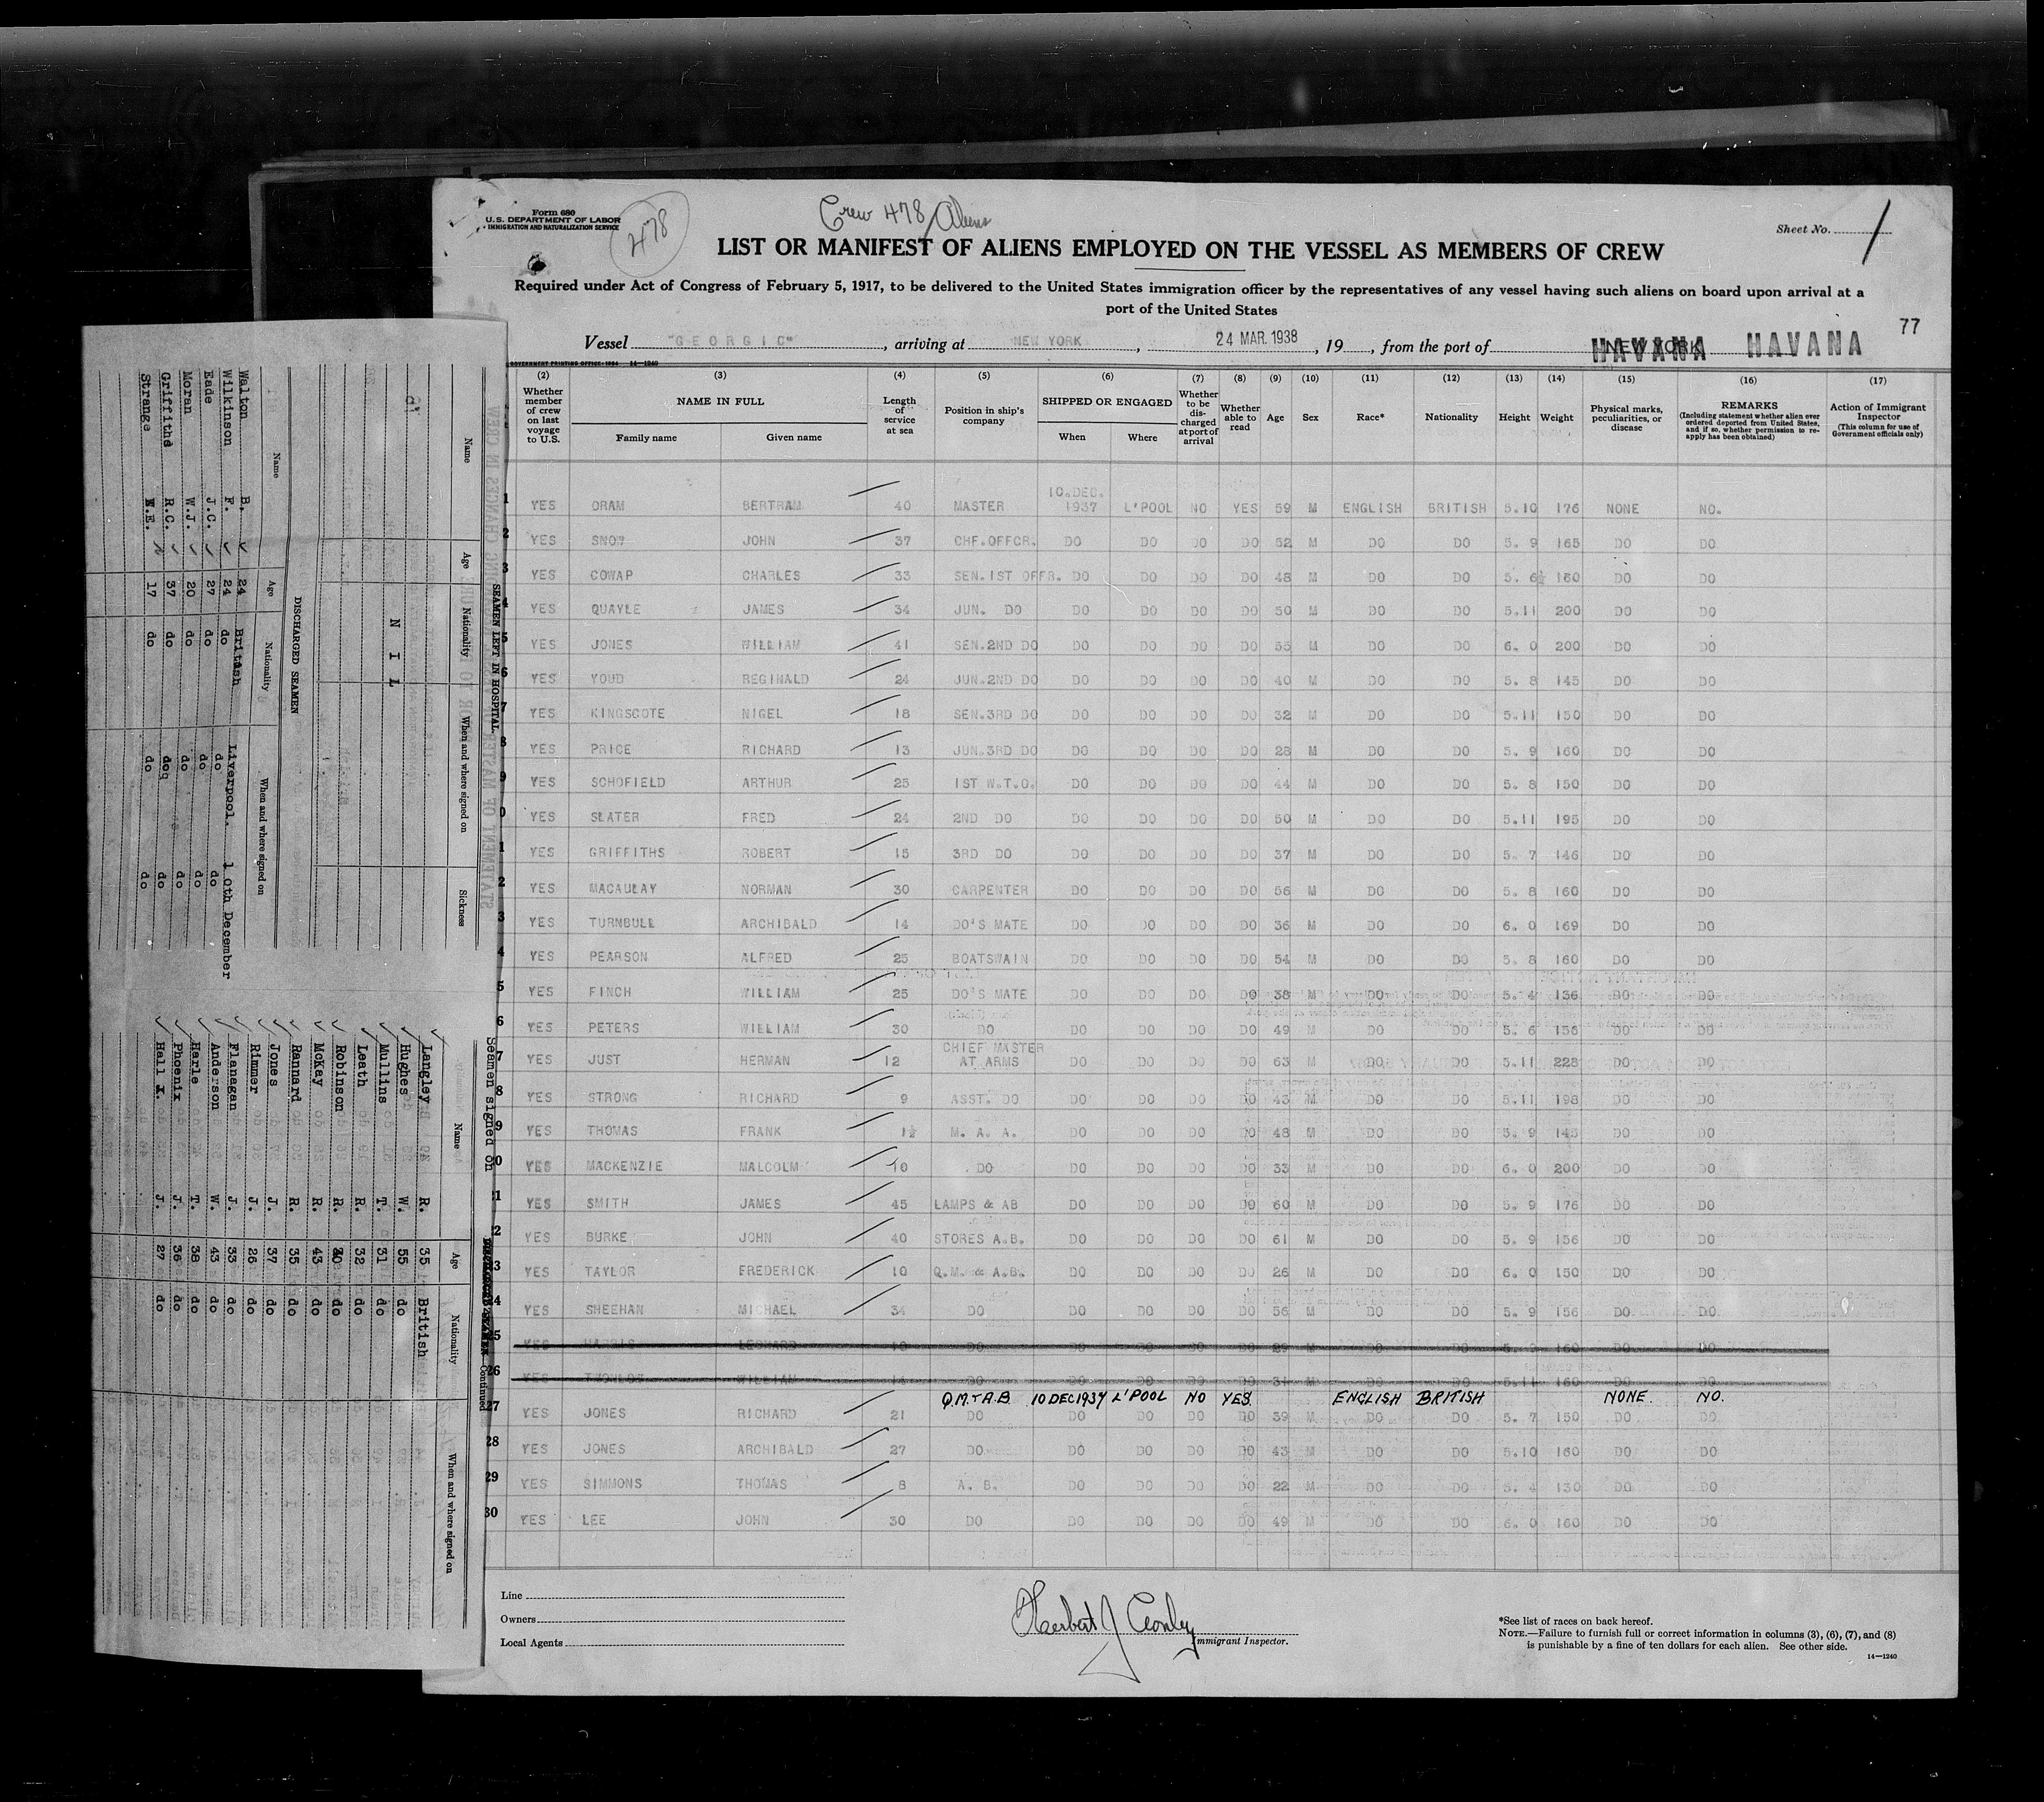 Form 680
U.S. DEPARTMENT OF LABOR
IMMIGRATION AND NATURALIZATION SERVICE
478
Crew 478 Aliens
Sheet No. 1
LIST OR MANIFEST OF ALIENS EMPLOYED ON THE VESSEL AS MEMBERS OF CREW
Required under Act of Congress of February 5, 1917, to be delivered to the United States immigration officer by the representatives of any vessel having such aliens on board upon arrival at a
port of the United States
77
Vessel "GEORGIC", arriving at NEW YORK, 24 MAR. 1938, 19, from the port of HAVANA HAVANA
GOVERNMENT PRINTING OFFICE: 1934 14-1240
(2) Whether member of crew on last voyage to U.S.
(3) NAME IN FULL Family name Given name
(4) Length of service at sea
(5) Position in ship's company
(6) SHIPPED OR ENGAGED When Where
(7) Whether to be discharged at port of arrival
(8) Whether able to read
(9) Age
(10) Sex
(11) Race*
(12) Nationality
(13) Height
(14) Weight
(15) Physical marks, peculiarities, or disease
(16) REMARKS (Including statement whether alien ever ordered deported from United States, and if so, whether permission to re-apply has been obtained)
(17) Action of Immigrant Inspector (This column for use of Government officials only)
1 YES ORAM BERTRAM 40 MASTER 10.DEC. 1937 L'POOL NO YES 59 M ENGLISH BRITISH 5.10 176 NONE NO.
2 YES SNOW JOHN 37 CHF.OFFCR. DO DO DO DO 52 M DO DO 5. 9 165 DO DO
3 YES COWAP CHARLES 33 SEN.1ST OFFR. DO DO DO DO 48 M DO DO 5. 6½ 160 DO DO
4 YES QUAYLE JAMES 34 JUN. DO DO DO DO DO 50 M DO DO 5.11 200 DO DO
5 YES JONES WILLIAM 41 SEN.2ND DO DO DO DO DO 55 M DO DO 6. 0 200 DO DO
6 YES YOUD REGINALD 24 JUN.2ND DO DO DO DO DO 40 M DO DO 5. 8 145 DO DO
7 YES KINGSCOTE NIGEL 18 SEN.3RD DO DO DO DO DO 32 M DO DO 5.11 150 DO DO
8 YES PRICE RICHARD 13 JUN.3RD DO DO DO DO DO 28 M DO DO 5. 9 160 DO DO
9 YES SCHOFIELD ARTHUR 25 1ST W.T.O. DO DO DO DO 44 M DO DO 5. 8 150 DO DO
0 YES SLATER FRED 24 2ND DO DO DO DO DO 50 M DO DO 5.11 195 DO DO
1 YES GRIFFITHS ROBERT 15 3RD DO DO DO DO DO 37 M DO DO 5. 7 146 DO DO
2 YES MACAULAY NORMAN 30 CARPENTER DO DO DO DO 56 M DO DO 5. 8 160 DO DO
3 YES TURNBULL ARCHIBALD 14 DO'S MATE DO DO DO DO 36 M DO DO 6. 0 169 DO DO
4 YES PEARSON ALFRED 25 BOATSWAIN DO DO DO DO 54 M DO DO 5. 8 160 DO DO
5 YES FINCH WILLIAM 25 DO'S MATE DO DO DO DO 38 M DO DO 5. 4 136 DO DO
6 YES PETERS WILLIAM 30 DO DO DO DO DO 49 M DO DO 5. 6 156 DO DO
7 YES JUST HERMAN 12 CHIEF MASTER AT ARMS DO DO DO DO 63 M DO DO 5.11 228 DO DO
8 YES STRONG RICHARD 9 ASST. DO DO DO DO DO 43 M DO DO 5.11 198 DO DO
9 YES THOMAS FRANK 1½ M. A. A. DO DO DO DO 48 M DO DO 5. 9 145 DO DO
20 YES MACKENZIE MALCOLM 10 DO DO DO DO DO 33 M DO DO 6. 0 200 DO DO
21 YES SMITH JAMES 45 LAMPS & AB DO DO DO DO 60 M DO DO 5. 9 176 DO DO
2 YES BURKE JOHN 40 STORES A.B. DO DO DO DO 61 M DO DO 5. 9 156 DO DO
3 YES TAYLOR FREDERICK 10 Q.M. & A.B. DO DO DO DO 26 M DO DO 6. 0 150 DO DO
24 YES SHEEHAN MICHAEL 34 DO DO DO DO DO 56 M DO DO 5. 9 156 DO DO
25 YES HARRIS LEONARD 10 DO DO DO DO DO 29 M DO DO 160 DO DO
26 YES WILLIAM DO DO DO DO DO 31 M DO DO 5.11 160 DO DO
Q.M.+A.B 10 DEC 1937 L'POOL NO YES. ENGLISH BRITISH NONE. NO.
27 YES JONES RICHARD 21 DO DO DO DO DO 39 M DO DO 5. 7 150 DO DO
28 YES JONES ARCHIBALD 27 DO DO DO DO DO 43 M DO DO 5.10 160 DO DO
29 YES SIMMONS THOMAS 8 A. B. DO DO DO DO 22 M DO DO 5. 4 130 DO DO
30 YES LEE JOHN 30 DO DO DO DO DO 49 M DO DO 6. 0 160 DO DO
Line
Owners
Local Agents
Herbert J Conley
Immigrant Inspector.
*See list of races on back hereof.
NOTE.—Failure to furnish full or correct information in columns (3), (6), (7), and (8)
is punishable by a fine of ten dollars for each alien. See other side.
14—1240
SEAMEN LEFT IN HOSPITAL
Name Age Nationality When and where signed on Sickness
N I L
DISCHARGED SEAMEN
Name Age Nationality When and where signed on
Walton B. 24 British Liverpool. 10th December
Wilkinson F. 24 do do do
Eade J.C. 27 do do do
Moran W.J. 20 do do do
Griffiths R.C. 37 do do do
Strange W.E. 17 do do do
Seamen signed on Continued
Name Age Nationality When and where signed on
Langley R. 35 British
Hughes W. 55 do
Mullins T. 31 do
Leath R. 32 do
Robinson R. 30 do
McKay R. 43 do
Rannard R. 35 do
Jones J. 37 do
Rimmer J. 26 do
Flanagan J. 33 do
Anderson W. 43 do
Harle T. 38 do
Phoenix J. 36 do
Hall J. 27 do